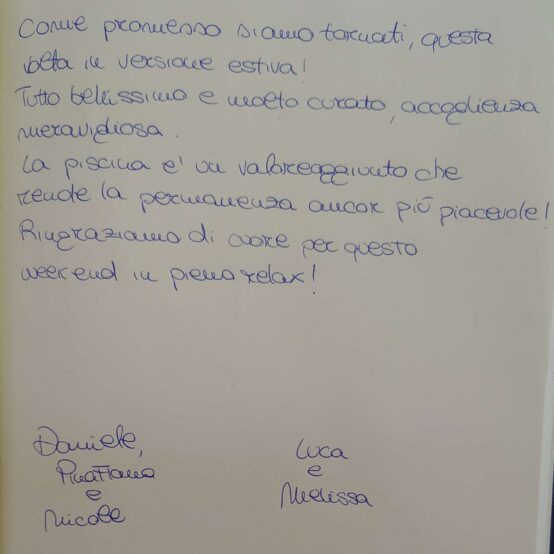 Come promesso siamo tornati, questa
volta in versione estiva!
Tutto bellissimo e molto curato, accoglienza
meravigliosa.
La piscina e' un valoreaggiunto che
rende la permanenza ancor più piacevole!
Ringraziamo di cuore per questo
weekend in pieno relax!
Daniele,
e
Nicole
Luca
e
Melissa